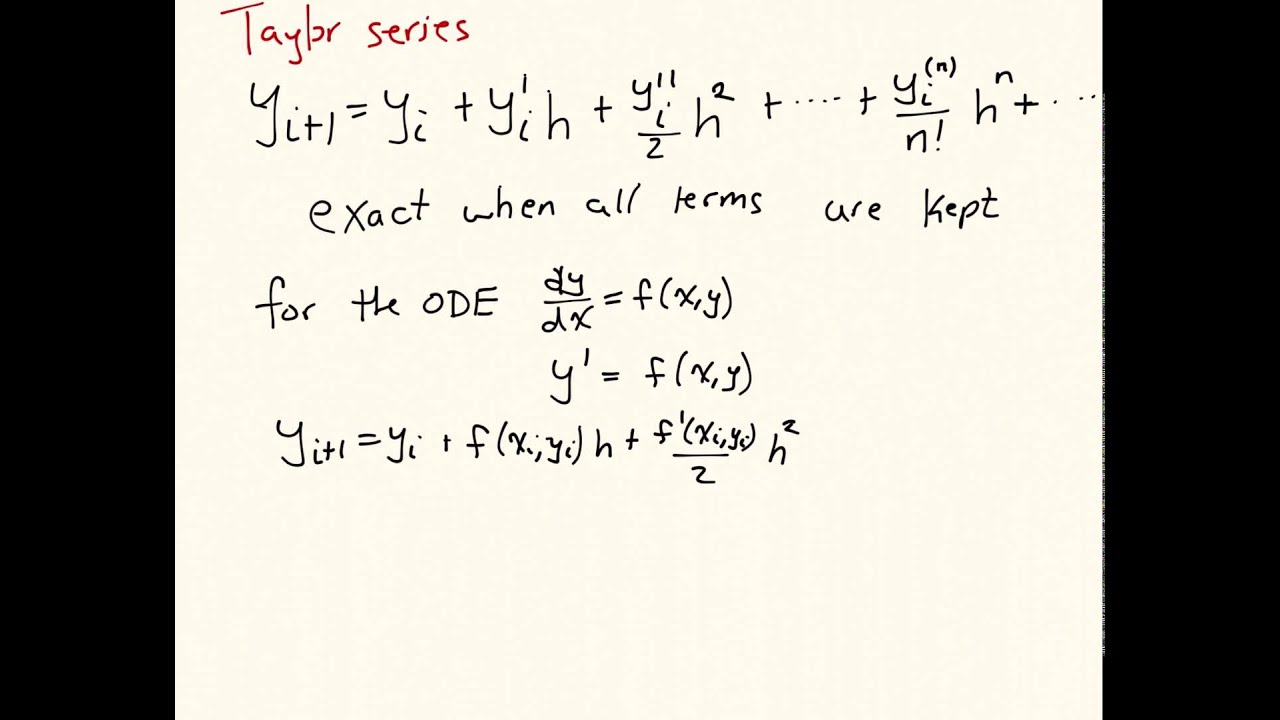 Taylor series
y_{i+1} = y_i + y_i' h + \frac{y_i''}{2} h^2 + ---- + \frac{y_i^{(n)}}{n!} h^n + ---
exact when all terms are kept
for the ODE \frac{dy}{dx} = f(x,y)
y' = f(x,y)
y_{i+1} = y_i + f(x_i, y_i) h + \frac{f'(x_i, y_i)}{2} h^2